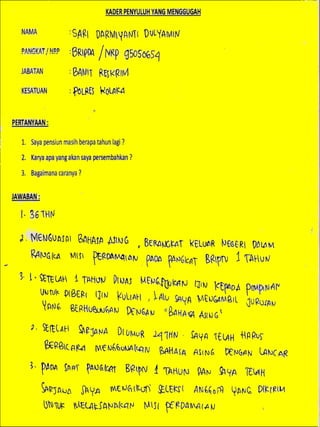 KADER PENYULUH YANG MENGGUGAH
NAMA : SARI DARMIYANTI DULYAMIN
PANGKAT / NRP : BRIPDA / NRP 95050654
JABATAN : BAMIT RESKRIM
KESATUAN : POLRES KOLAKA
PERTANYAAN :
1. Saya pensiun masih berapa tahun lagi ?
2. Karya apa yang akan saya persembahkan ?
3. Bagaimana caranya ?
JAWABAN :
1. 36 THN
2. MENGUASAI BAHASA ASING , BERANGKAT KELUAR NEGERI DALAM
RANGKA MISI PERDAMAIAN PADA PANGKAT BRIPTU 1 TAHUN
3. 1. SETELAH 1 TAHUN DINAS MENGAJUKAN IJIN KEPADA PIMPINAN
UNTUK DIBERI IJIN KULIAH , LALU SAYA MENGAMBIL JURUSAN
YANG BERHUBUNGAN DENGAN "BAHASA ASING"
2. SETELAH SARJANA DIUMUR 24 THN SAYA TELAH HARUS
BERBICARA MENGGUNAKAN BAHASA ASING DENGAN LANCAR
3. PADA SAAT PANGKAT BRIPTU 1 TAHUN DAN SAYA TELAH
SARJANA SAYA MENGIKUTI SELEKSI ANGGOTA YANG DIKIRIM
UNTUK MELAKSANAKAN MISI PERDAMAIAN